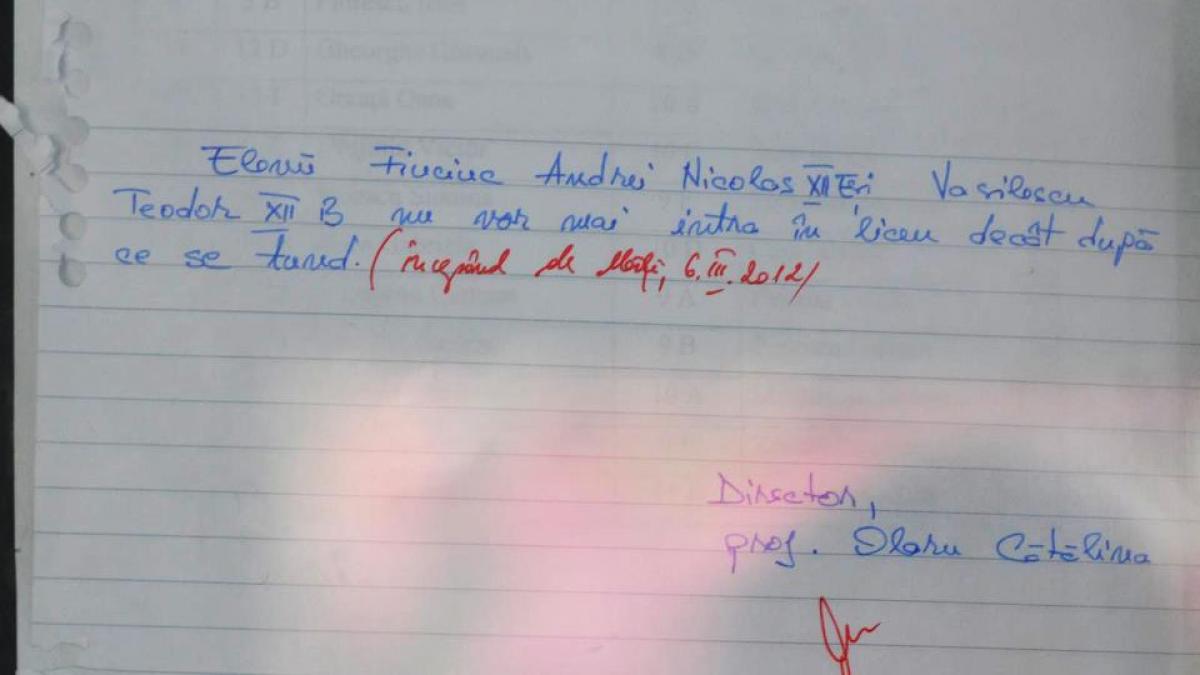 Elevii Fiuciuc Andrei Nicolas XII E și Vasilescu
Teodor XII B nu vor mai intra în liceu decât după
ce se tund. (începând de Marți, 6.III.2012)
Director,
prof. Olaru Cătălina